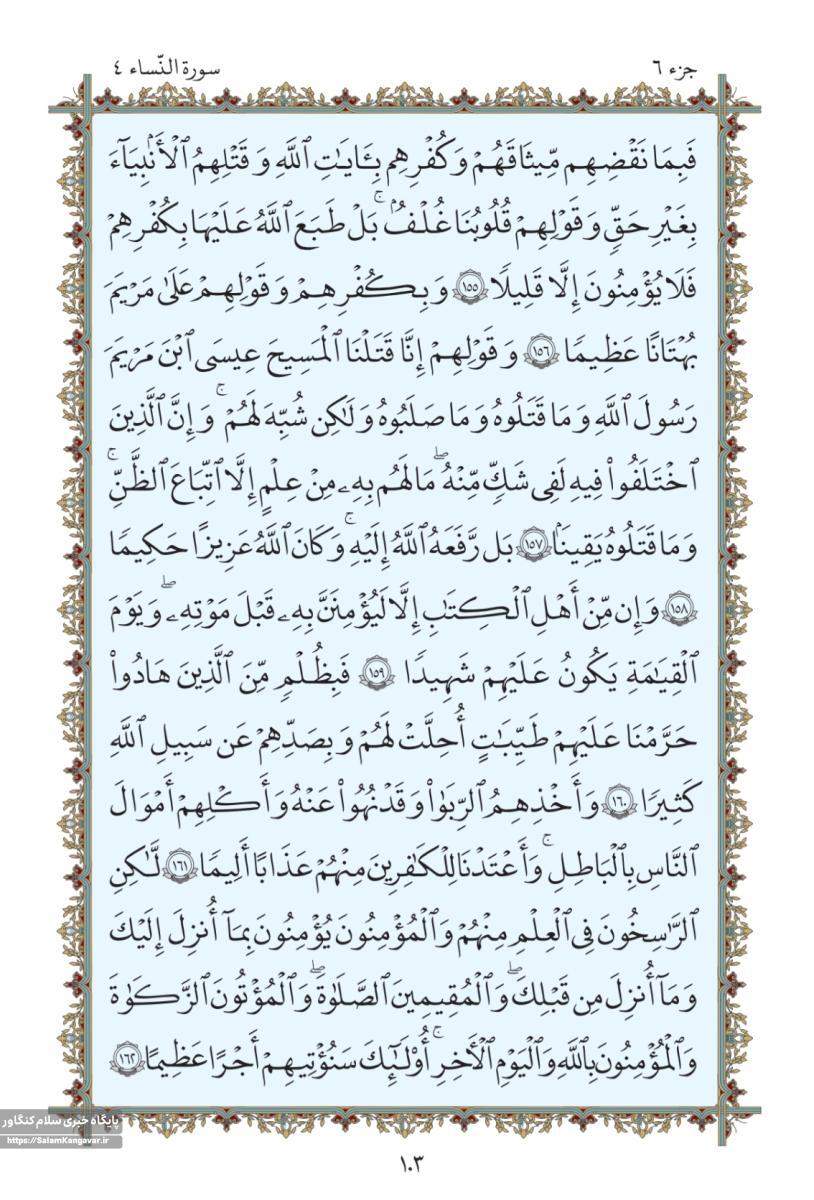 جزء ٦
سورة النّساء ٤
فَبِمَا نَقْضِهِم مِّيثَاقَهُمْ وَكُفْرِهِم بِـَٔايَـٰتِ ٱللَّهِ وَقَتْلِهِمُ ٱلْأَنۢبِيَآءَ
بِغَيْرِ حَقٍّ وَقَوْلِهِمْ قُلُوبُنَا غُلْفٌۢ ۚ بَلْ طَبَعَ ٱللَّهُ عَلَيْهَا بِكُفْرِهِمْ
فَلَا يُؤْمِنُونَ إِلَّا قَلِيلًا ١٥٥ وَبِكُفْرِهِمْ وَقَوْلِهِمْ عَلَىٰ مَرْيَمَ
بُهْتَانًا عَظِيمًا ١٥٦ وَقَوْلِهِمْ إِنَّا قَتَلْنَا ٱلْمَسِيحَ عِيسَى ٱبْنَ مَرْيَمَ
رَسُولَ ٱللَّهِ وَمَا قَتَلُوهُ وَمَا صَلَبُوهُ وَلَـٰكِن شُبِّهَ لَهُمْ ۚ وَإِنَّ ٱلَّذِينَ
ٱخْتَلَفُوا۟ فِيهِ لَفِى شَكٍّ مِّنْهُ ۖ مَا لَهُم بِهِۦ مِنْ عِلْمٍ إِلَّا ٱتِّبَاعَ ٱلظَّنِّ ۚ
وَمَا قَتَلُوهُ يَقِينًۢا ١٥٧ بَل رَّفَعَهُ ٱللَّهُ إِلَيْهِ ۚ وَكَانَ ٱللَّهُ عَزِيزًا حَكِيمًا
١٥٨ وَإِن مِّنْ أَهْلِ ٱلْكِتَـٰبِ إِلَّا لَيُؤْمِنَنَّ بِهِۦ قَبْلَ مَوْتِهِۦ ۖ وَيَوْمَ
ٱلْقِيَـٰمَةِ يَكُونُ عَلَيْهِمْ شَهِيدًا ١٥٩ فَبِظُلْمٍ مِّنَ ٱلَّذِينَ هَادُوا۟
حَرَّمْنَا عَلَيْهِمْ طَيِّبَـٰتٍ أُحِلَّتْ لَهُمْ وَبِصَدِّهِمْ عَن سَبِيلِ ٱللَّهِ
كَثِيرًا ١٦٠ وَأَخْذِهِمُ ٱلرِّبَوٰا۟ وَقَدْ نُهُوا۟ عَنْهُ وَأَكْلِهِمْ أَمْوَالَ
ٱلنَّاسِ بِٱلْبَاطِلِ ۚ وَأَعْتَدْنَا لِلْكَافِرِينَ مِنْهُمْ عَذَابًا أَلِيمًا ١٦١ لَّـٰكِنِ
ٱلرَّٰسِخُونَ فِى ٱلْعِلْمِ مِنْهُمْ وَٱلْمُؤْمِنُونَ يُؤْمِنُونَ بِمَآ أُنزِلَ إِلَيْكَ
وَمَآ أُنزِلَ مِن قَبْلِكَ ۖ وَٱلْمُقِيمِينَ ٱلصَّلَوٰةَ ۖ وَٱلْمُؤْتُونَ ٱلزَّكَوٰةَ
وَٱلْمُؤْمِنُونَ بِٱللَّهِ وَٱلْيَوْمِ ٱلْأَخِرِ ۚ أُو۟لَـٰٓئِكَ سَنُؤْتِيهِمْ أَجْرًا عَظِيمًا ١٦٢
پایگاه خبری سلام کنگاور
https://SalamKangavar.ir
١٠٣